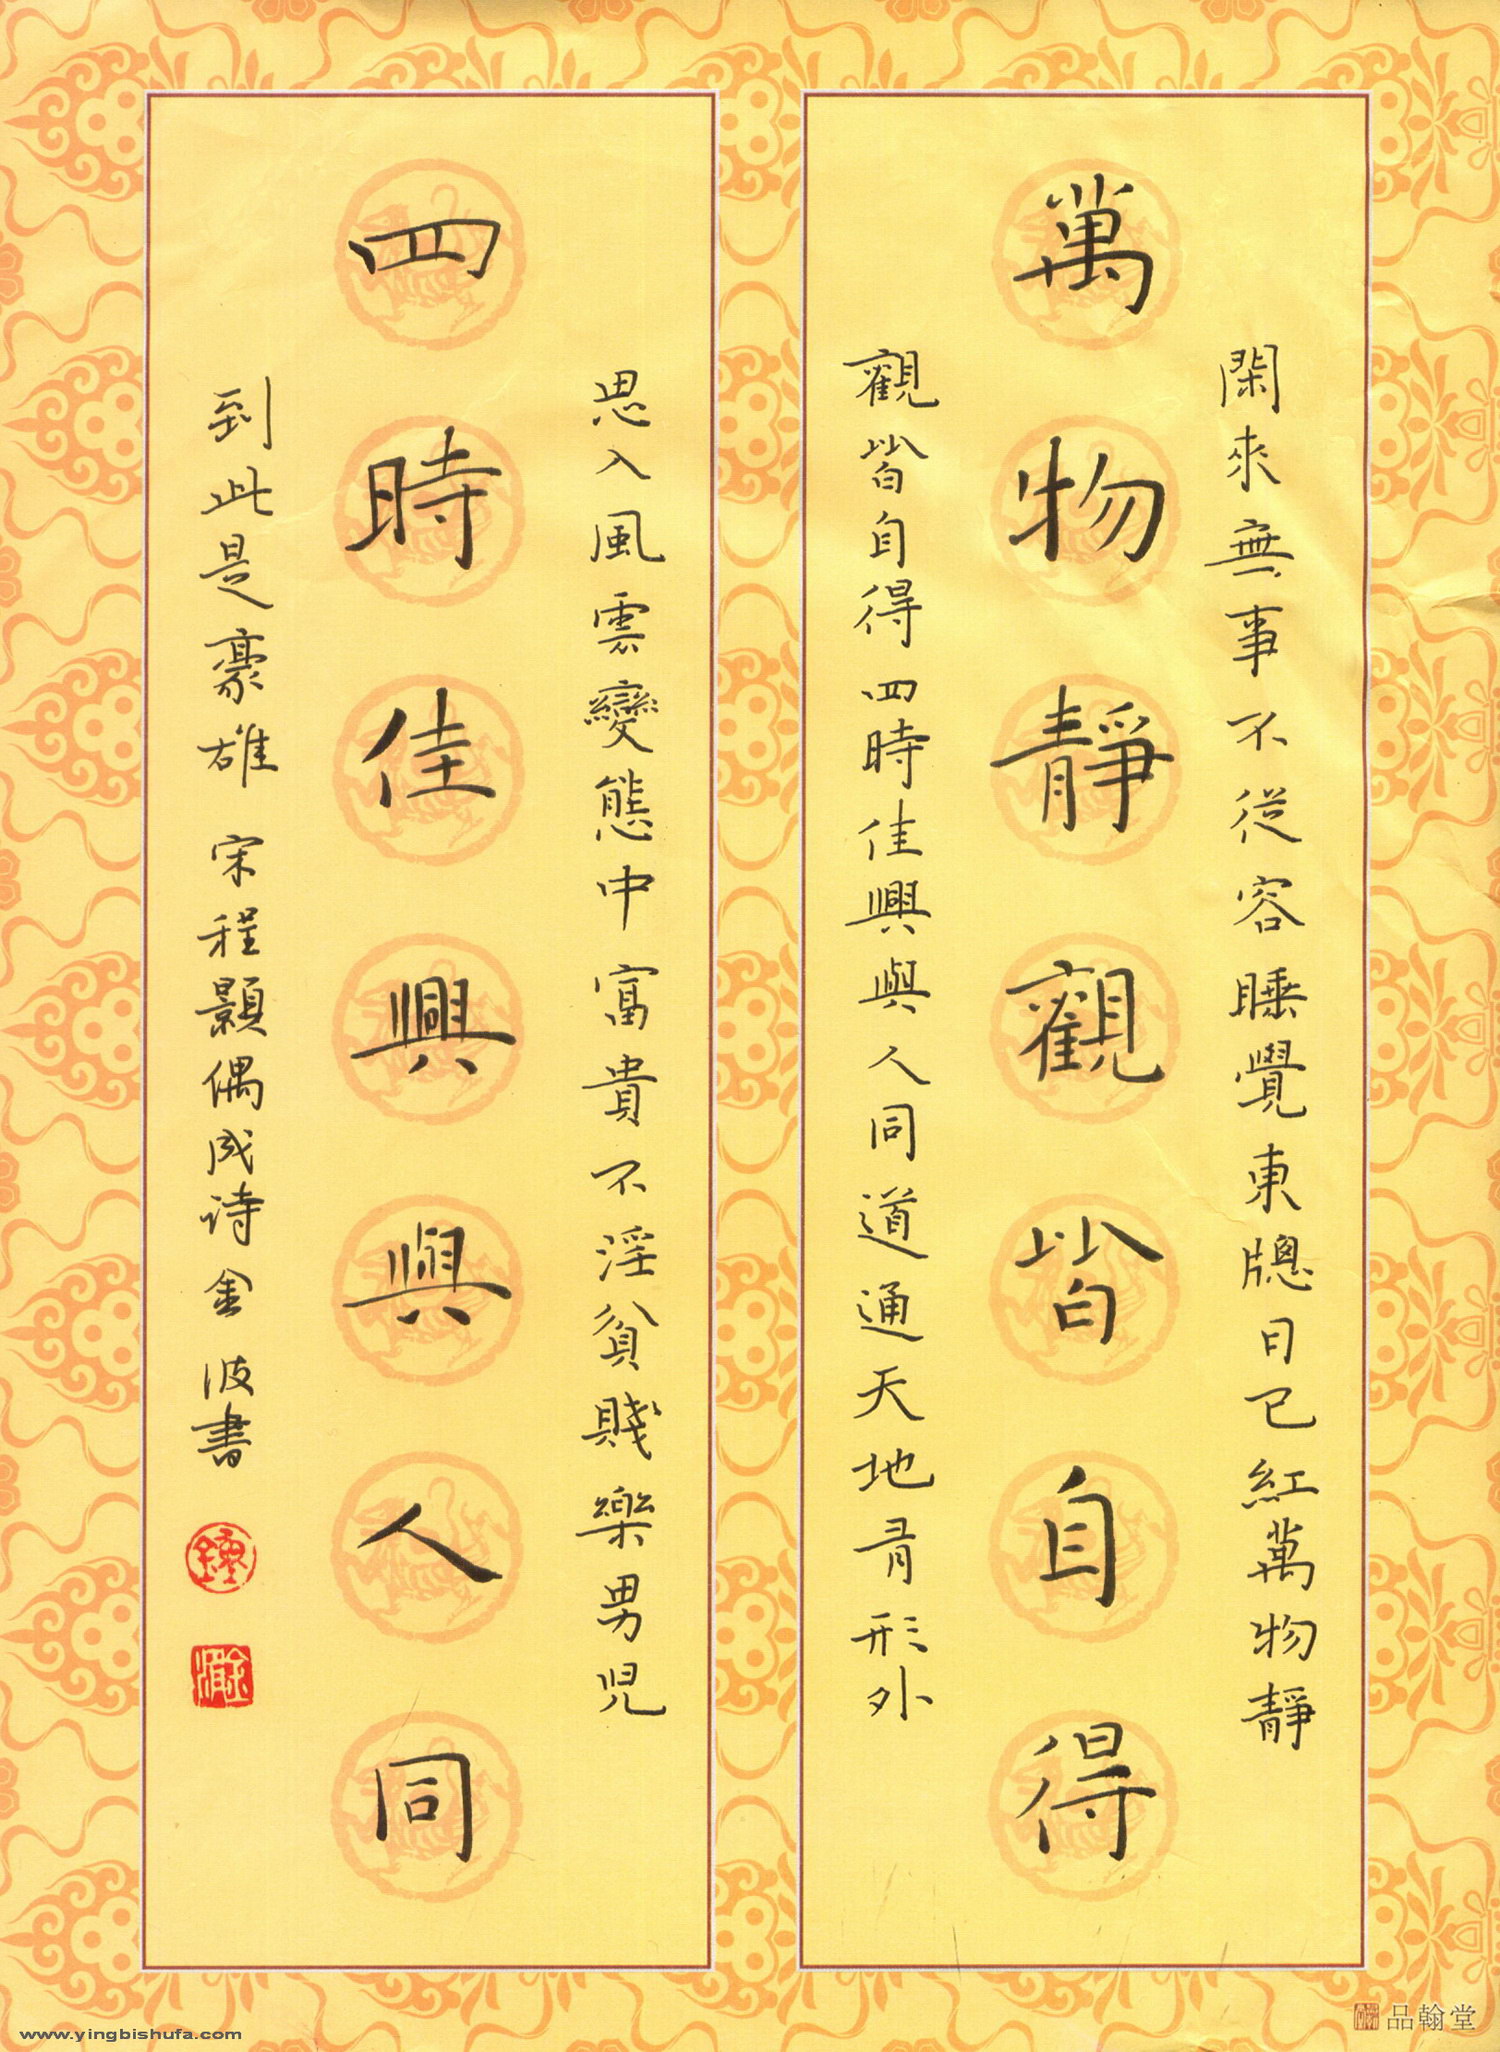 閑來無事不從容睡覺東牕日已紅萬物靜
萬物靜觀皆自得
觀皆自得四時佳興與人同道通天地有形外
思入風雲變態中富貴不淫貧賤樂男兒
四時佳興與人同
到此是豪雄 宋程顥偶成诗 金波書
www.yingbishufa.com
品翰堂